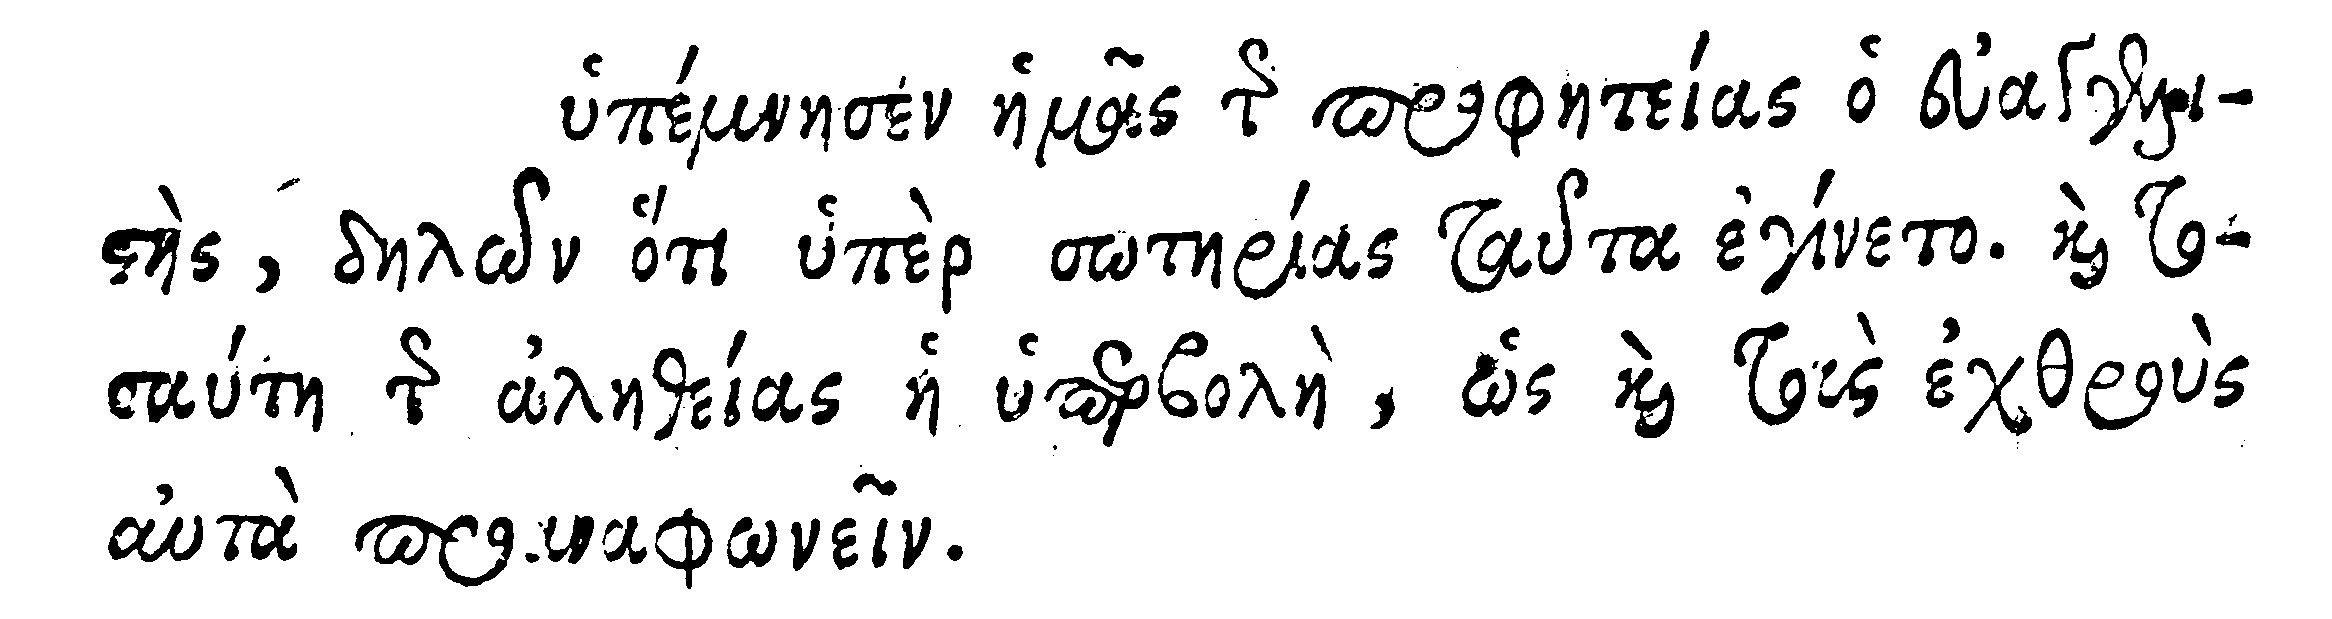 ὑπέμνησεν ἡμᾶς τῆς προφητείας ὁ εὐαγγελι-
στὴς, δηλῶν ὅτι ὑπὲρ σωτηρίας ταῦτα ἐγίνετο. καὶ το-
σαύτη τῆς ἀληθείας ἡ ὑπερβολὴ, ὡς καὶ τοὺς ἐχθροὺς
αὐτὰ προαναφωνεῖν.